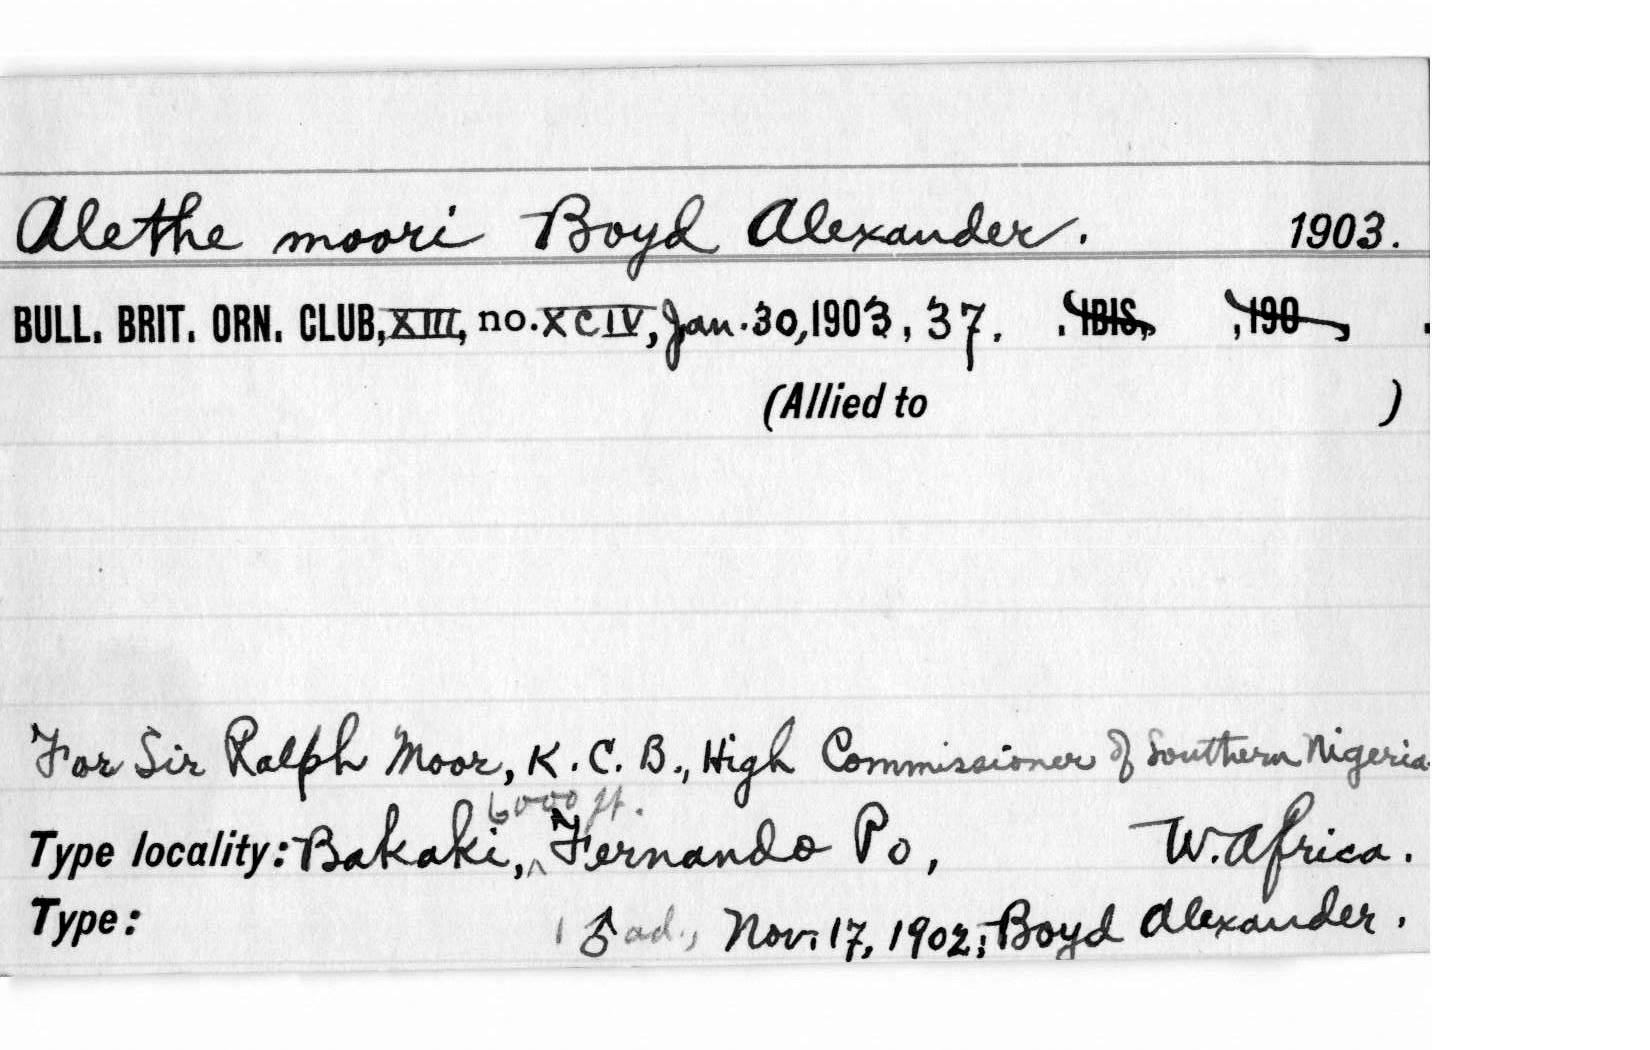 Alethe moori Boyd Alexander. 1903.
BULL. BRIT. ORN. CLUB, XIII, no. XCIV, Jan. 30, 1903, 37. . IBIS, , 190 , .
(Allied to )
For Sir Ralph Moor, K.C.B., High Commissioner of Southern Nigeria.
6000 ft.
Type locality: Bakaki, ^ Fernando Po, W. Africa.
Type: 1 ♂ ad., Nov. 17, 1902; Boyd Alexander.